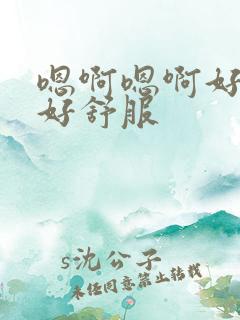 嗯啊嗯啊好
好舒服
s沈公子
未经同意禁止转载